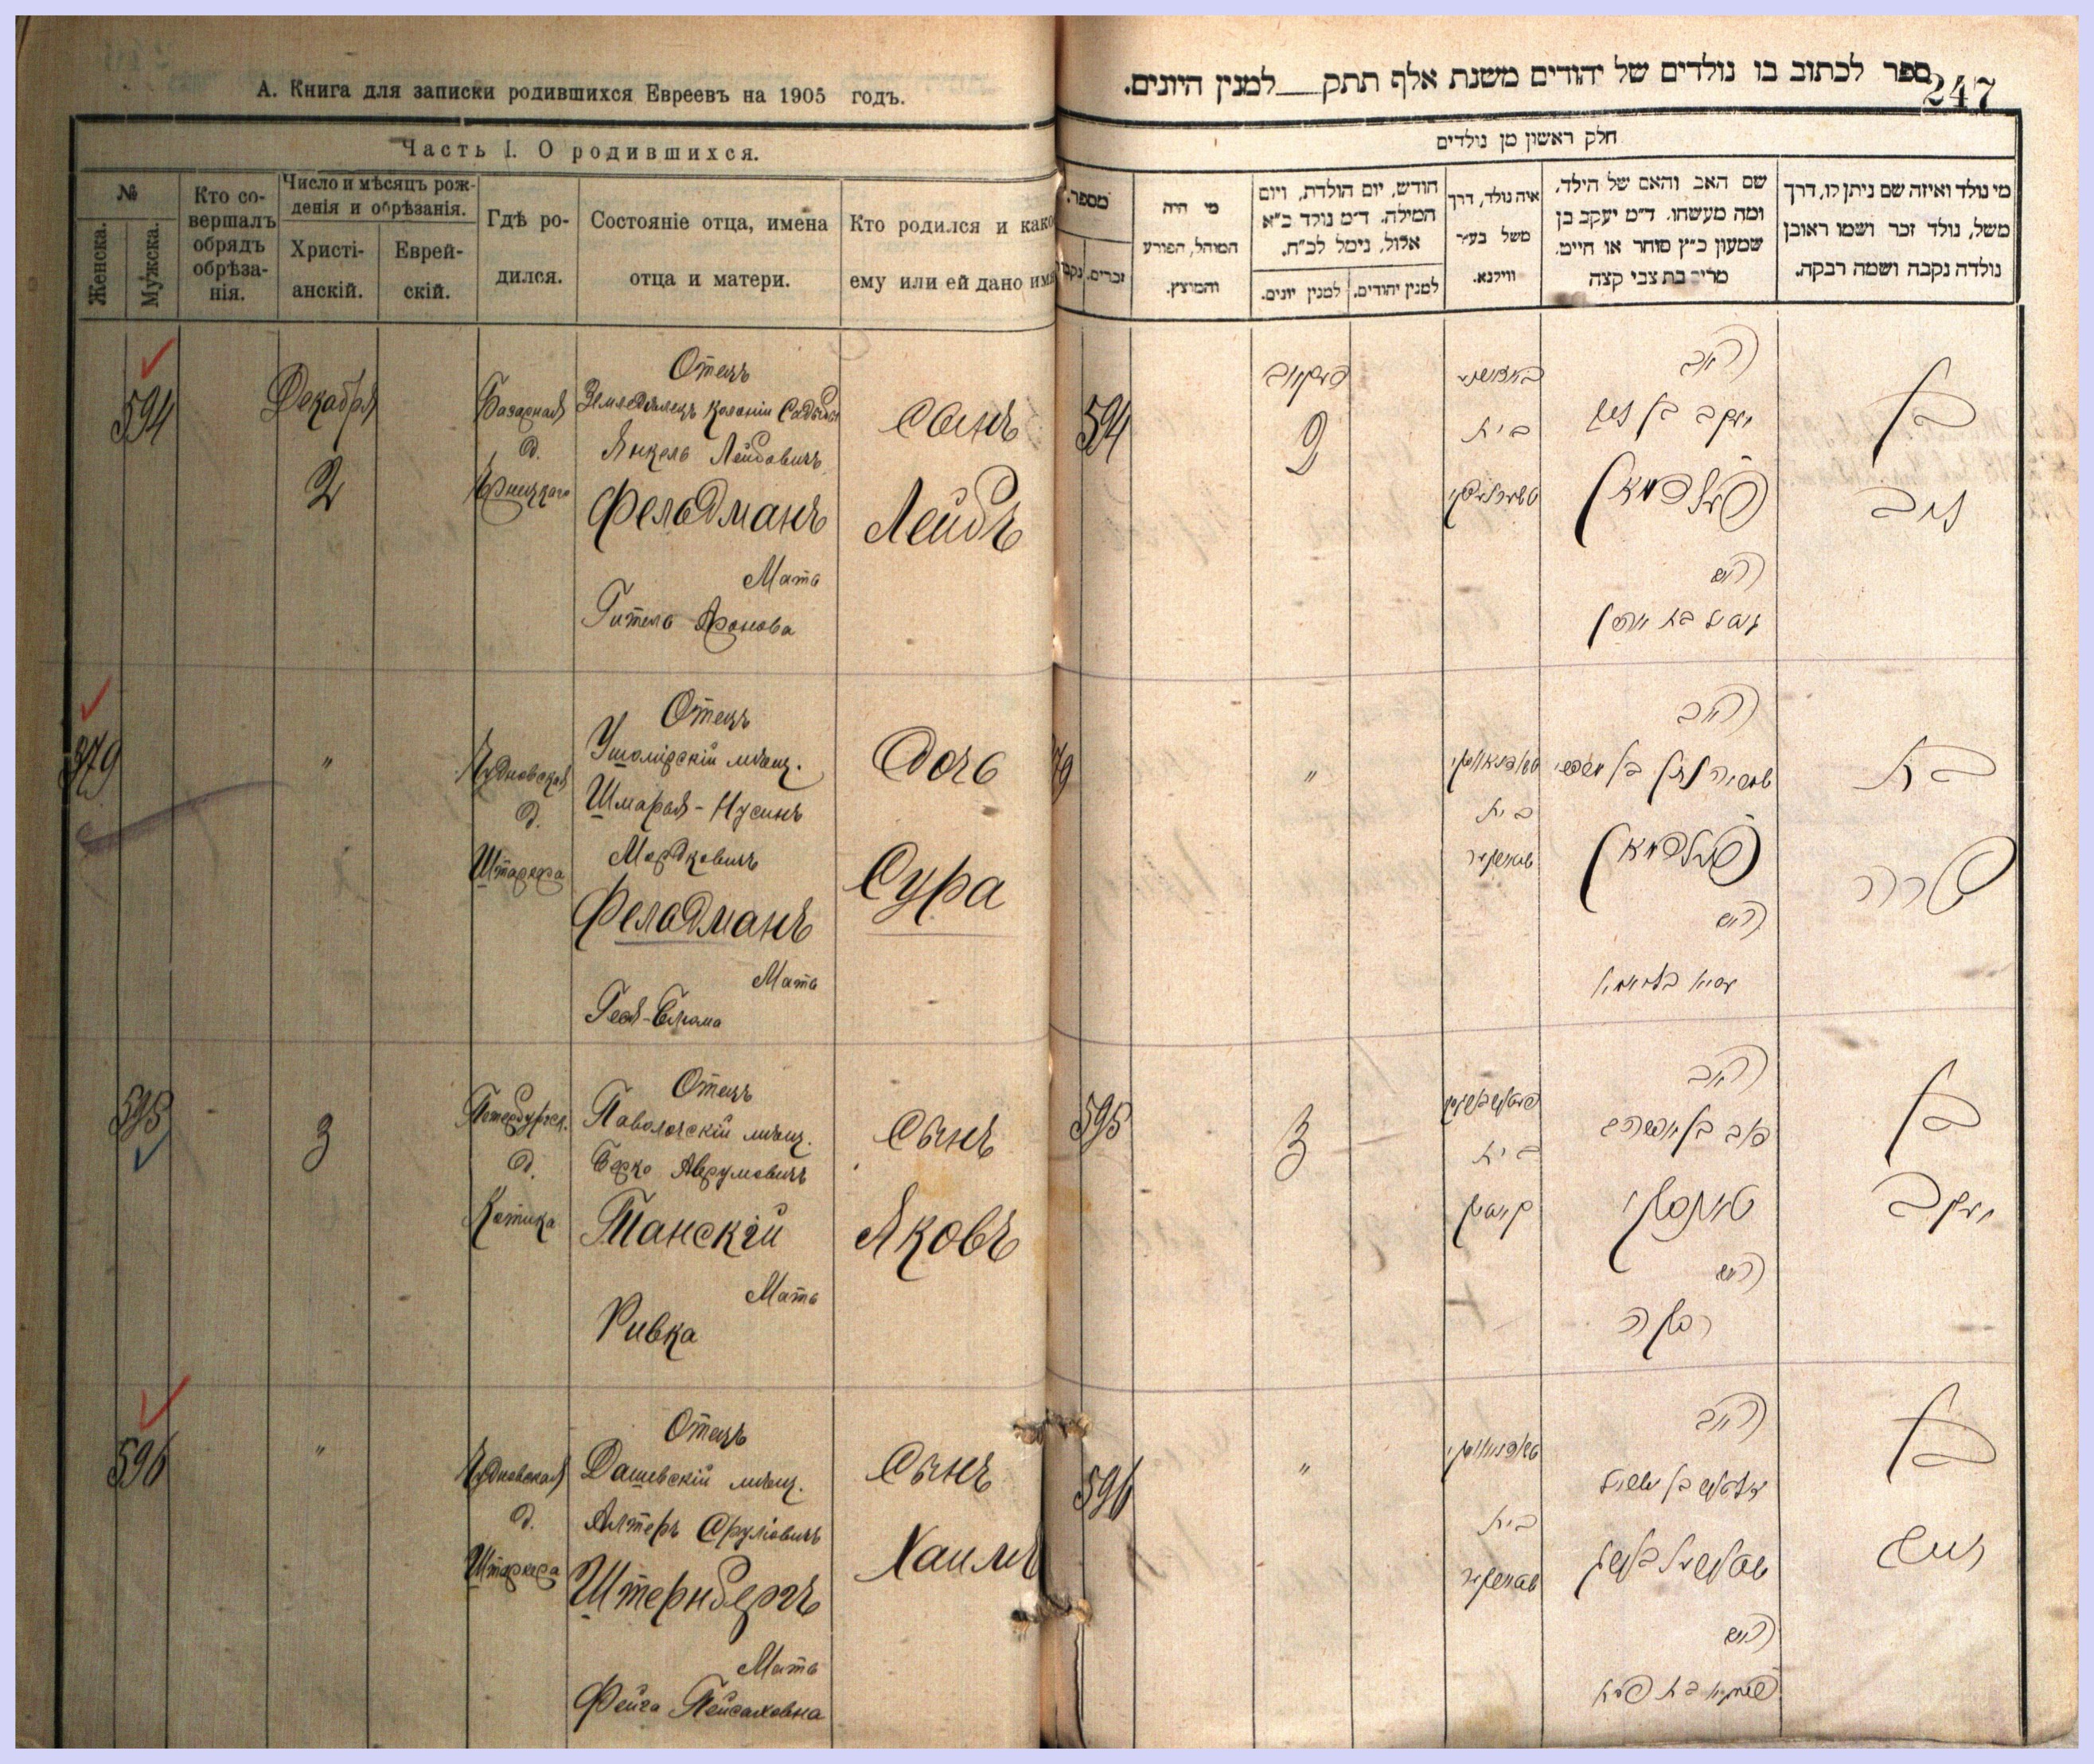 А. Книга для записки родившихся Евреевъ на 1905 годъ.
Часть I. О родившихся.
№
Женска.
Мужска.
Кто со-
вершалъ
обрядъ
обрѣза-
нія.
Число и мѣсяцъ рож-
денія и обрѣзанія.
Христі-
анскій.
Еврей-
скій.
Гдѣ ро-
дился.
Состояніе отца, имена
отца и матери.
Кто родился и како
ему или ей дано имя
594
Декабря
2
Базарная
д.
Отецъ
Земледѣлецъ колоніи
Янкель Лейбовичъ
Фельдманъ
Мать
Гитель Аронова
Сынъ
Лейбъ
379
"
Чудновская
д.
Штаркера
Отецъ
Ушомірскій мѣщ.
Шмарая-Нусинъ
Мордковичъ
Фельдманъ
Мать
Дочь
Сура
595
3
Петербургск.
д.
Котика
Отецъ
Паволочскій мѣщ.
Берко Аврумовичъ
Танскій
Мать
Ривка
Сынъ
Яковъ
596
"
Чудновская
д.
Штаркера
Отецъ
Дашевскій мѣщ.
Алтеръ Сруліовичъ
Штернбергъ
Мать
Фейга Пейсаховна
Сынъ
Хаимъ
247
ספר לכתוב בו נולדים של יהודים משנת אלף תתק למנין היונים.
חלק ראשון מן נולדים
מי נולד ואיזה שם ניתן לו, דרך
משל, נולד זכר ושמו ראובן
נולדה נקבה ושמה רבקה.
שם האב והאם של הילד,
ומה מעשהו. ד״מ יעקב בן
שמעון כ״ץ סוחר או חייט.
מרים בת צבי קצה
איה נולד, דרך
משל בעיר
ווילנא.
חודש, יום הולדת, ויום
המילה. ד״מ נולד כ״א
אלול, נימל לכ״ח.
למנין יהודים.
למנין יונים.
מי היה
המוהל, הפורע
והמוצץ.
מספר.
זכרים.
נקב
בן
לייב
האב
יעקב בן לייב
פעלדמאן
האם
גיטל בת אהרן
בית
2
594
בת
שרה
האב
פעלדמאן
האם
בית
"
79
בן
יעקב
האב
בער בן אברהם
טאנסקי
האם
רבקה
בית
3
595
בן
חיים
האב
אלטער בן ישראל
שטערנבערג
האם
בית
"
596